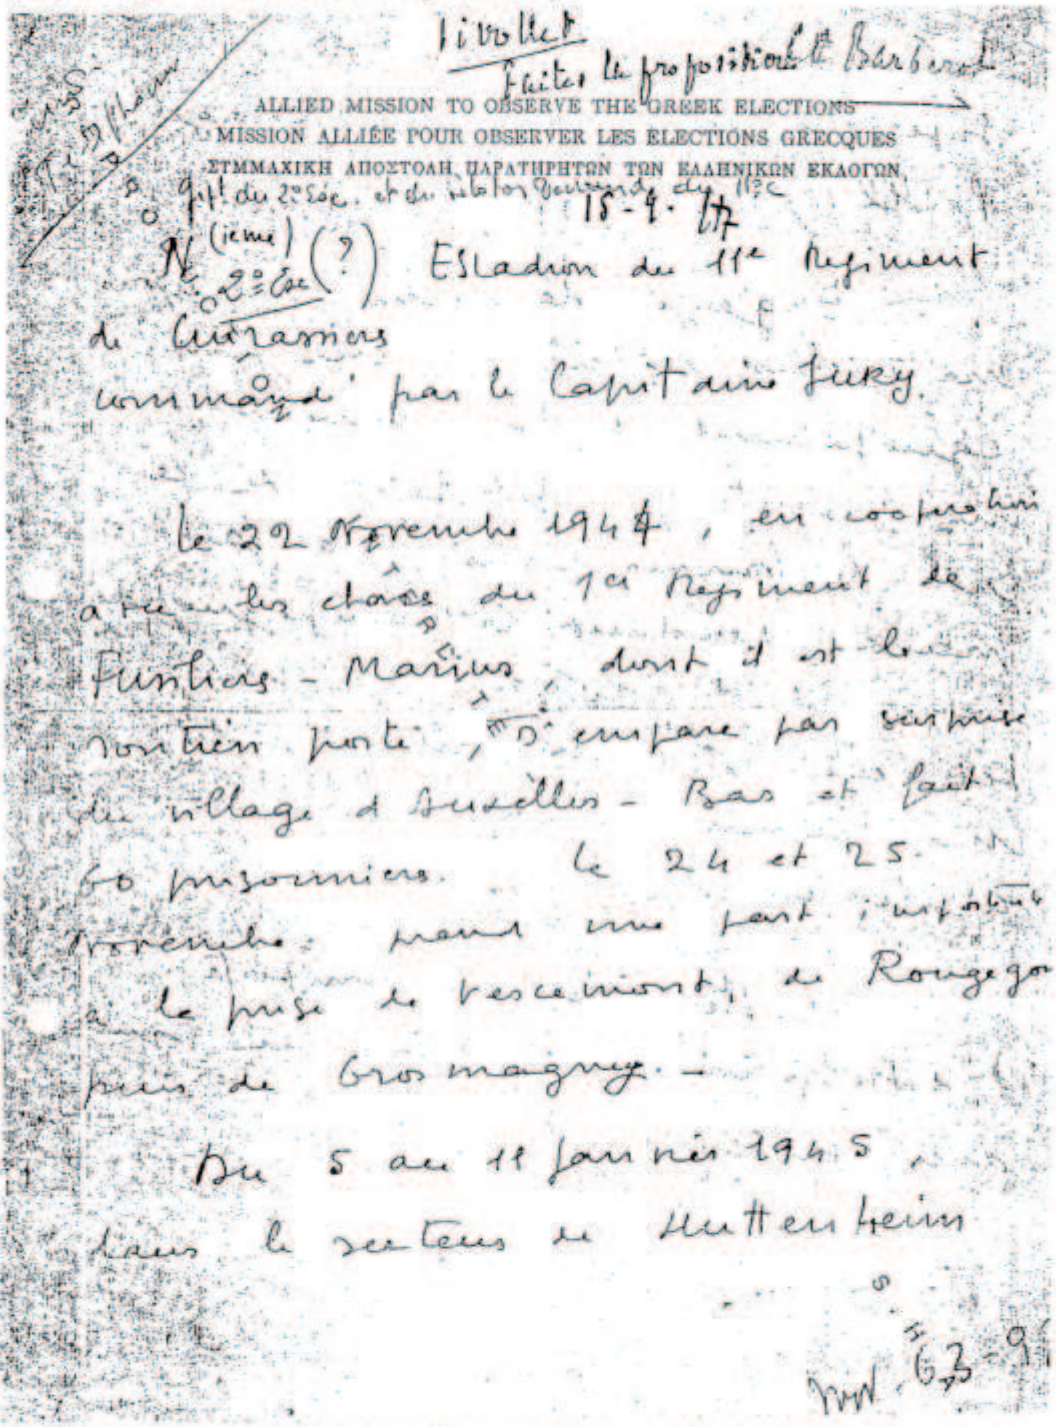 Tivollet
Faites la proposition Ct Barberot
ALLIED MISSION TO OBSERVE THE GREEK ELECTIONS
MISSION ALLIÉE POUR OBSERVER LES ELECTIONS GRECQUES
ΣΥΜΜΑΧΙΚΗ ΑΠΟΣΤΟΛΗ ΠΑΡΑΤΗΡΗΤΩΝ ΤΩΝ ΕΛΛΗΝΙΚΩΝ ΕΚΛΟΓΩΝ
du 2º Esc. et du
15-9-47
N (ieme) (?) Escadron du 11e Regiment
2º Esc
de Cuirassiers
commandé par le Capitaine Jury.
Le 22 Novembre 1944, en coopération
avec les chars du 1er Regiment de
Fusiliers-Marins, dont il est le
soutien porté, s'empare par surprise
du village d'Auxelles-Bas et fait
60 prisonniers. Le 24 et 25
Novembre prend une part importante
a la prise de Vescemont, de Rougego
puis de Grosmagny. -
Du 5 au 11 Janvier 1945,
dans le secteur de Huttenheim